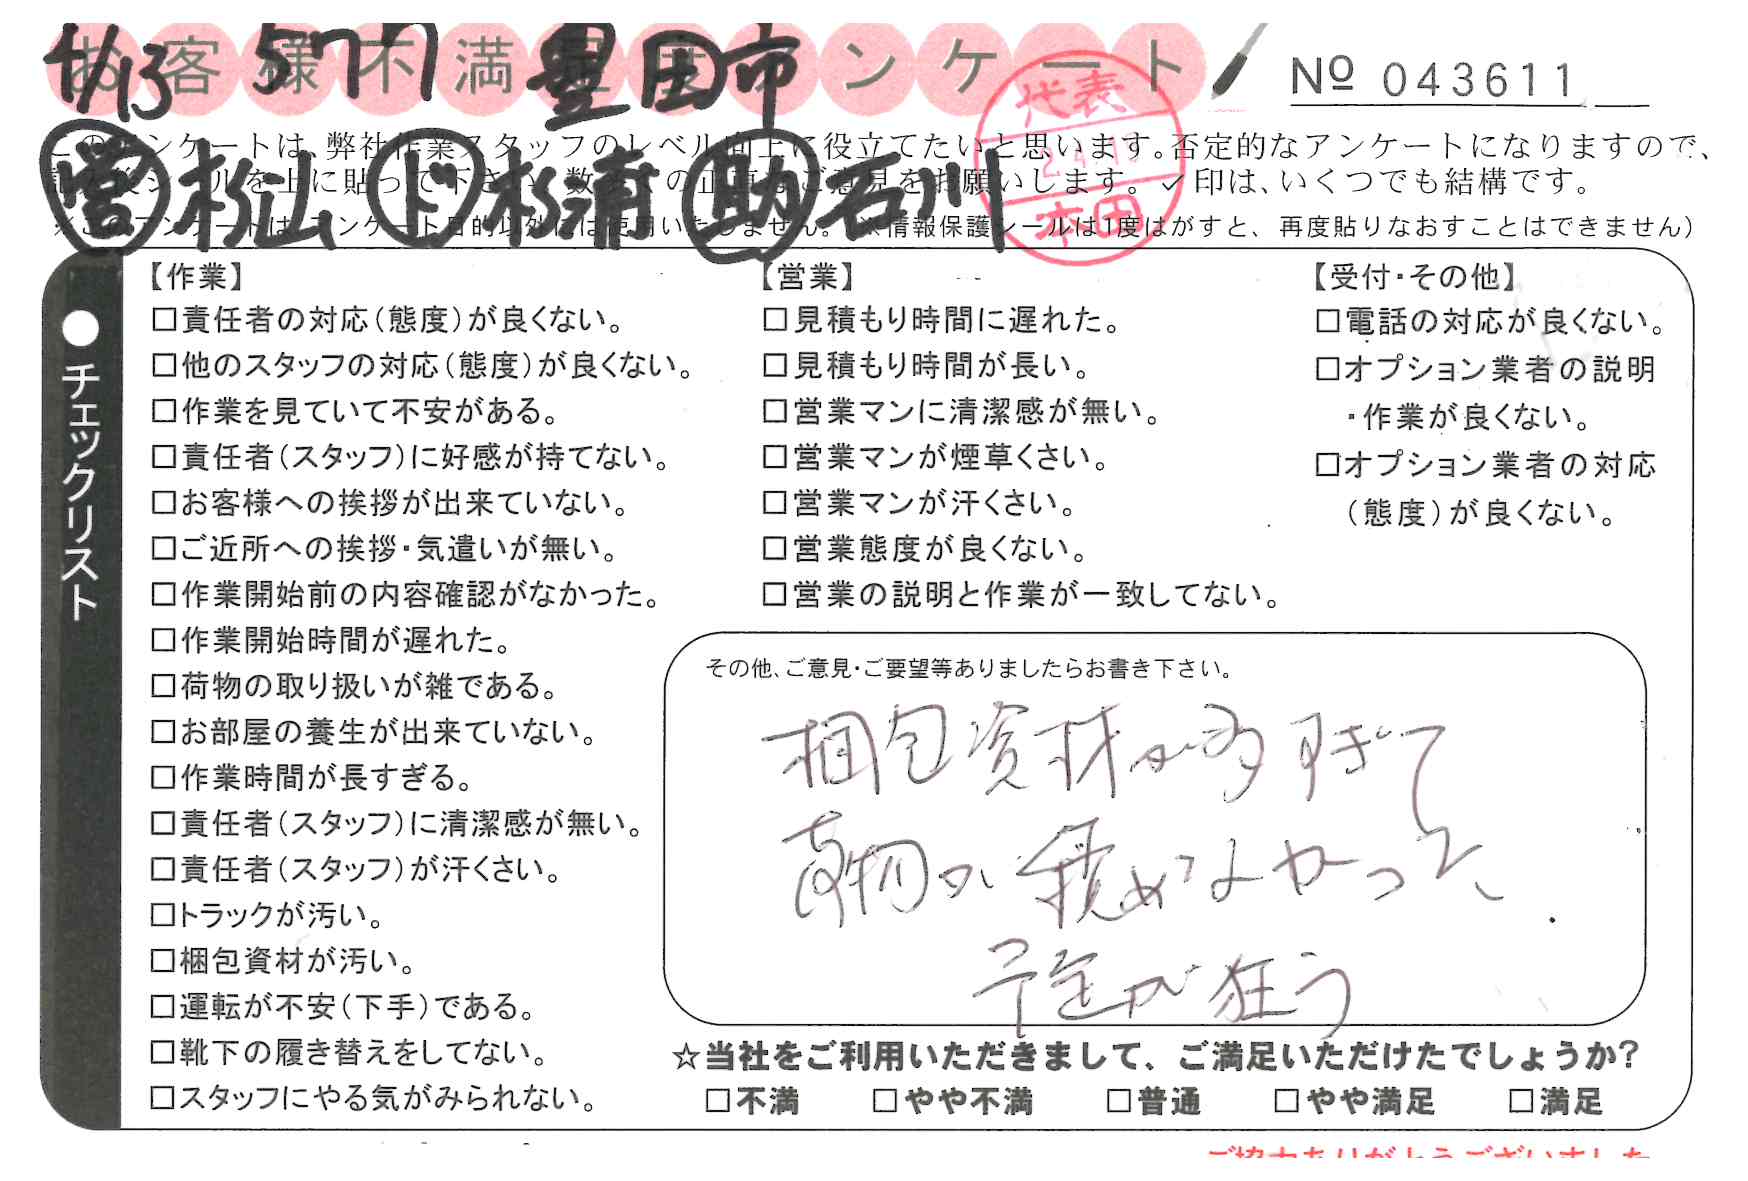 お客様不満足度アンケート
4/13 577 豊田市
№ 043611
代表
2.4.13
本田
このアンケートは、弊社作業スタッフのレベル向上に役立てたいと思います。否定的なアンケートになりますので、
営 松山 ド 杉浦 助 石川
記入後シールを上に貼って下さい。数多くの正直なご意見をお願いします。✓印は、いくつでも結構です。
※このアンケートは、アンケート目的以外には使用いたしません。(※情報保護シールは1度はがすと、再度貼りなおすことはできません)
●チェックリスト
【作業】
□責任者の対応(態度)が良くない。
□他のスタッフの対応(態度)が良くない。
□作業を見ていて不安がある。
□責任者(スタッフ)に好感が持てない。
□お客様への挨拶が出来ていない。
□ご近所への挨拶・気遣いが無い。
□作業開始前の内容確認がなかった。
□作業開始時間が遅れた。
□荷物の取り扱いが雑である。
□お部屋の養生が出来ていない。
□作業時間が長すぎる。
□責任者(スタッフ)に清潔感が無い。
□責任者(スタッフ)が汗くさい。
□トラックが汚い。
□梱包資材が汚い。
□運転が不安(下手)である。
□靴下の履き替えをしてない。
□スタッフにやる気がみられない。
【営業】
□見積もり時間に遅れた。
□見積もり時間が長い。
□営業マンに清潔感が無い。
□営業マンが煙草くさい。
□営業マンが汗くさい。
□営業態度が良くない。
□営業の説明と作業が一致してない。
【受付・その他】
□電話の対応が良くない。
□オプション業者の説明
・作業が良くない。
□オプション業者の対応
(態度)が良くない。
その他、ご意見・ご要望等ありましたらお書き下さい。
梱包資材が多すぎて
荷物が積めなかった。
予定が狂う
☆当社をご利用いただきまして、ご満足いただけたでしょうか?
□不満 □やや不満 □普通 □やや満足 □満足
ご協力ありがとうございました